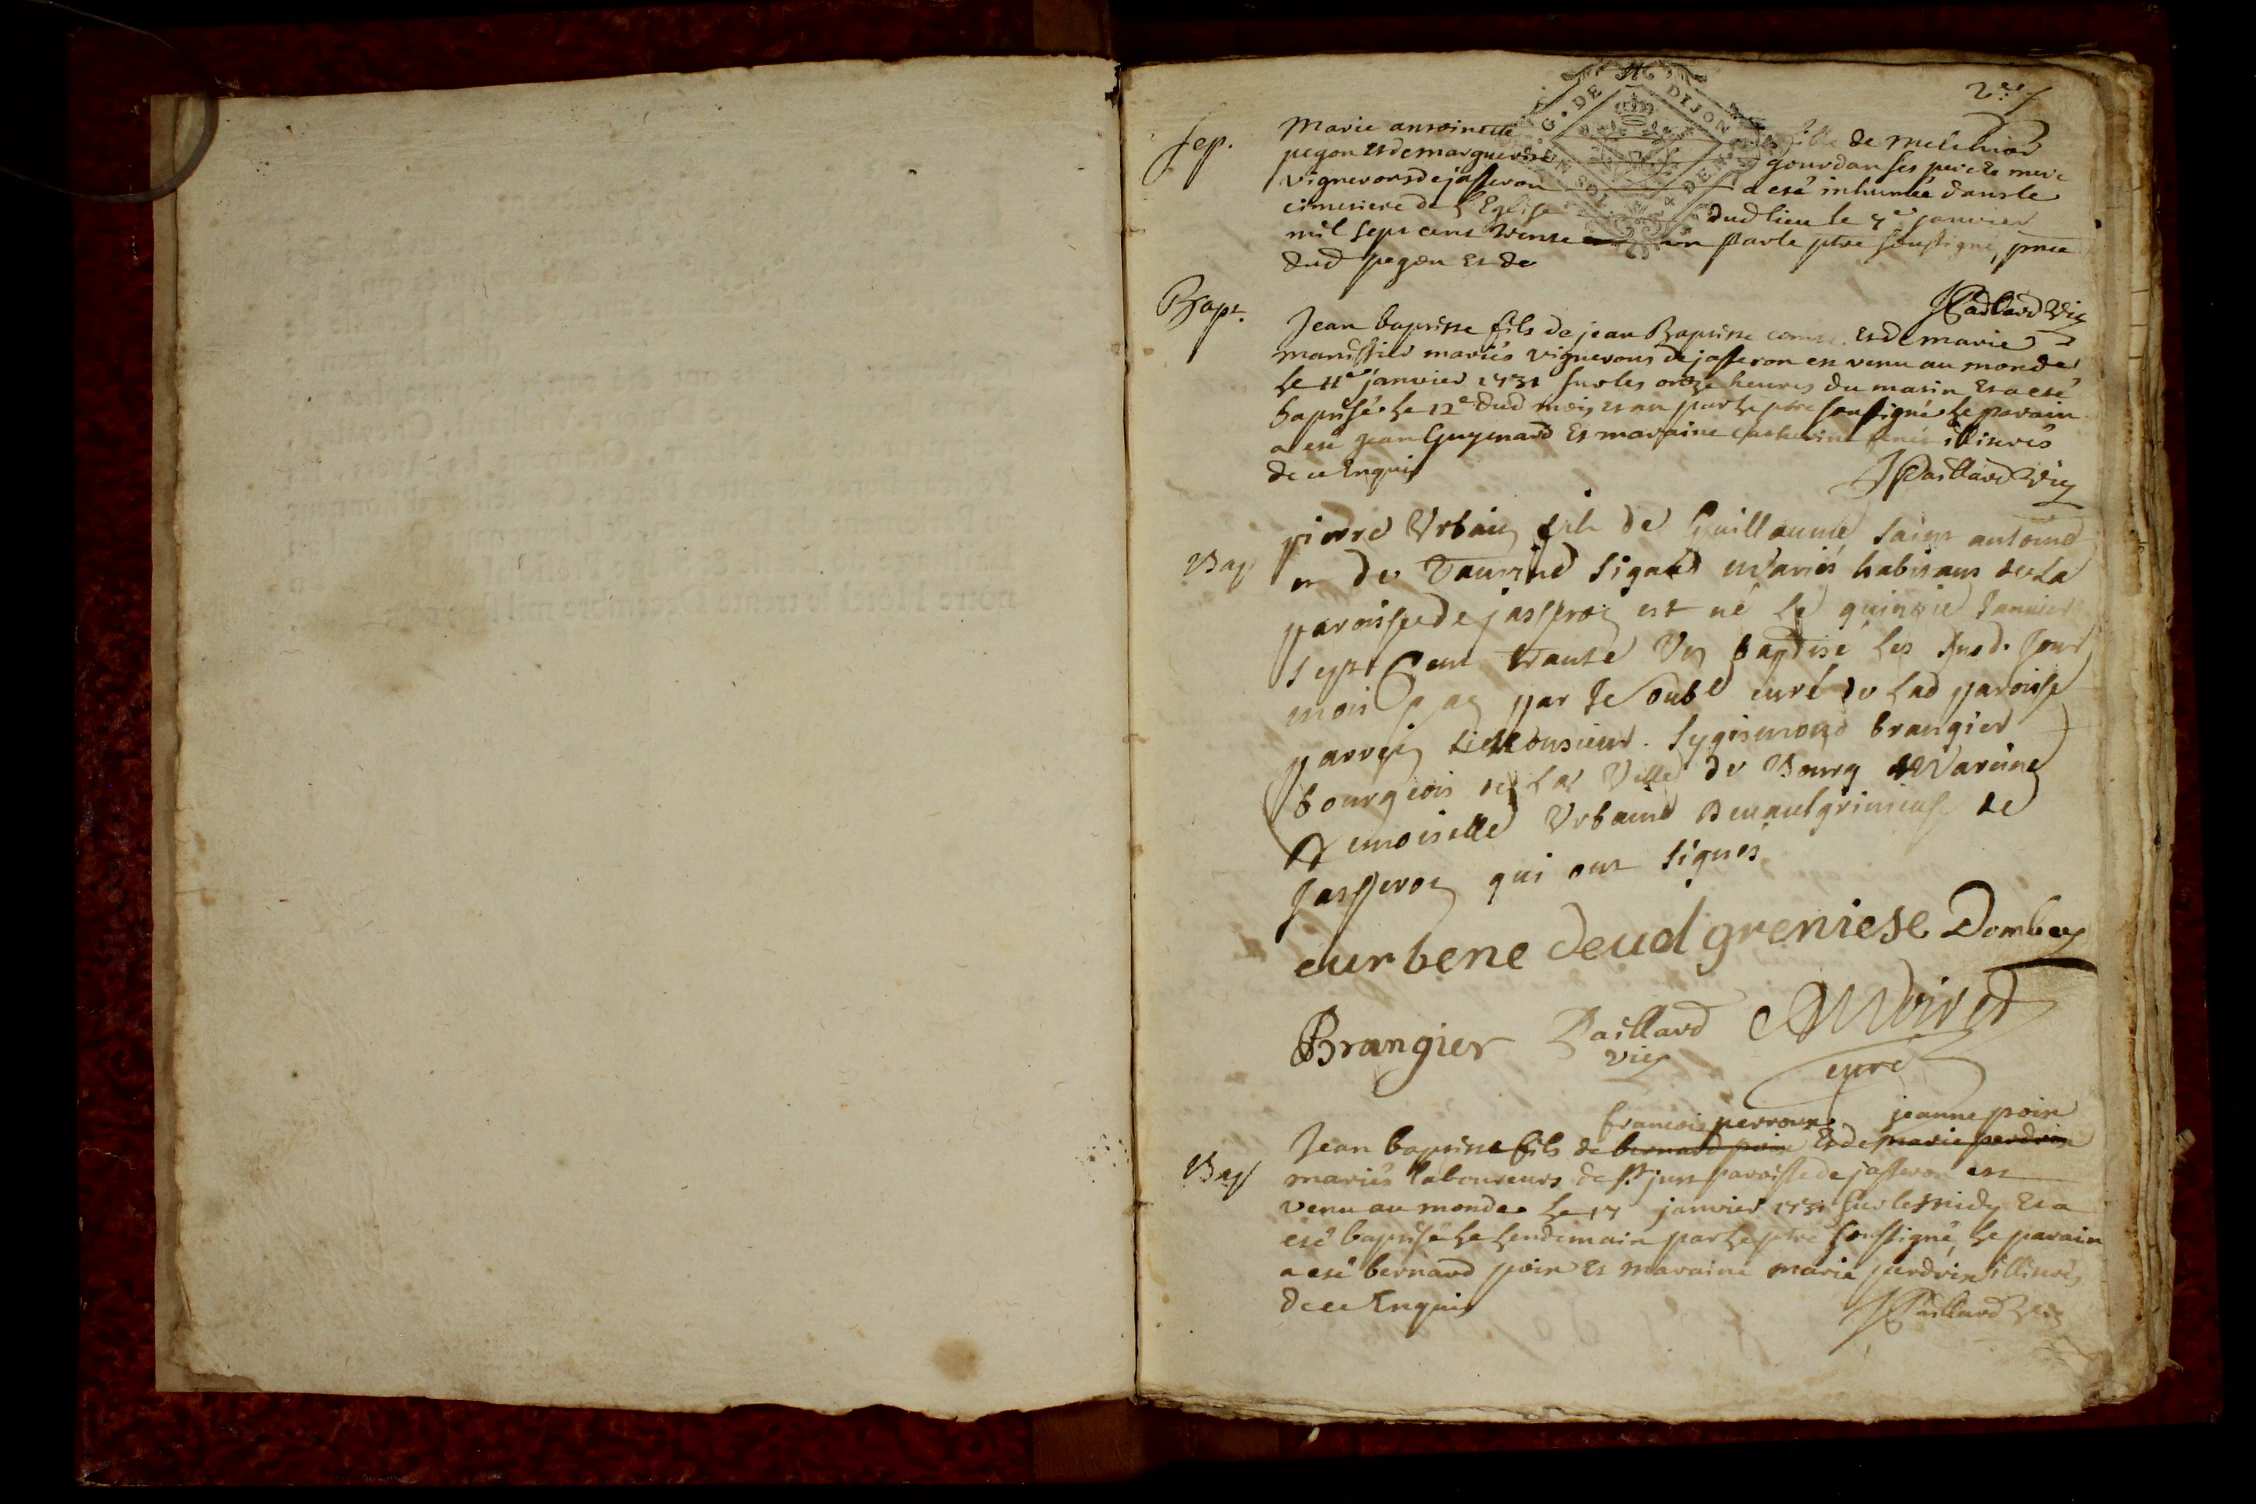 2e
Sep.
Marie antoinette fille de Melchior
pegon et de marguerite gourdan ses pere et mere
vignerons de jasseron a eté inhumée dans le
cimetiere de l'Eglise dud lieu le 7e janvier
mil sept cent trente un par le ptre soussigné, pnce
dud pegon et de
JPaillard Vic
G. DE DIJON
Bapt.
Jean baptiste fils de jean Baptiste et de marie
mariés vignerons de jasseron est venu au monde
le 11e janvier 1731 sur les onze heures du matin et a eté
baptisé le 12e dud mois et an par le ptre soussigné le parain
a eté jean Guynard et maraine catherine illiterés
de ce Enquis
JPaillard Vic
Bap
pierre Urbain fils de Guillaume saint antoine
et de sigaud Mariés habitans de La
paroisse de jasseron est né le quinzie Janvier
sept Cent trante Un baptisé les susd. Jour
mois et an par Je soubé curé de Lad paroisse
parrein Monsieur Sygismond brangier
bourgeois de La Ville de Bourg Mareine
Demoiselle Urbaine de
Jasseron qui ont signés
eurbene deudgreniese Dombey
Brangier Paillard
vic
curé
francois perroux jeanne poin
Jean baptiste fils de bernard poin et de marie perdrix
Bap
mariés laboureurs de St just paroisse de jasseron est
venu au monde le 17 janvier 1731 sur le midy et a
eté baptisé le lendemain par le ptre soussigné le parain
a eté bernard poin et maraine marie perdrix illiterés
de ce Enquis
JPaillard Vic